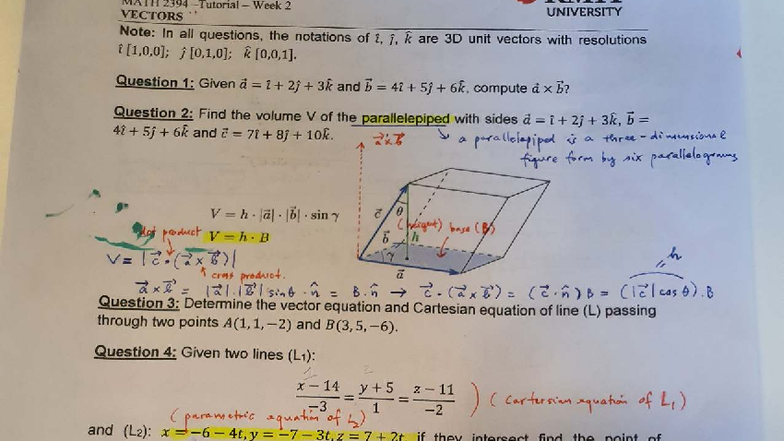 MATH 2394 –Tutorial – Week 2
RMIT
VECTORS
UNIVERSITY
Note: In all questions, the notations of î, ĵ, k̂ are 3D unit vectors with resolutions
î [1,0,0]; ĵ [0,1,0]; k̂ [0,0,1].
Question 1: Given a⃗ = î + 2ĵ + 3k̂ and b⃗ = 4î + 5ĵ + 6k̂, compute a⃗ × b⃗?
Question 2: Find the volume V of the parallelepiped with sides a⃗ = î + 2ĵ + 3k̂, b⃗ =
4î + 5ĵ + 6k̂ and c⃗ = 7î + 8ĵ + 10k̂.
↳ a parallelopiped is a three-dimensional
figure form by six parallelograms
a⃗×b⃗
V = h · |a⃗| · |b⃗| · sin γ
c⃗ θ
(height) base (B)
dot product
V = h · B
b⃗ h
γ
V = |c⃗ • (a⃗ × b⃗)|
a⃗
cross product.
h
a⃗ × b⃗ = |a⃗|.|b⃗| sinθ . n̂ = B.n̂ → c⃗ • (a⃗ × b⃗) = (c⃗ • n̂) B = (|c⃗| cos θ).B
Question 3: Determine the vector equation and Cartesian equation of line (L) passing
through two points A(1,1,−2) and B(3,5,−6).
Question 4: Given two lines (L₁):
x − 14 / −3 = y + 5 / 1 = z − 11 / −2 ) (cartersian equation of L₁)
(parametric equation of L₂)
and (L₂): x = −6 − 4t, y = −7 − 3t, z = 7 + 2t if they intersect find the point of